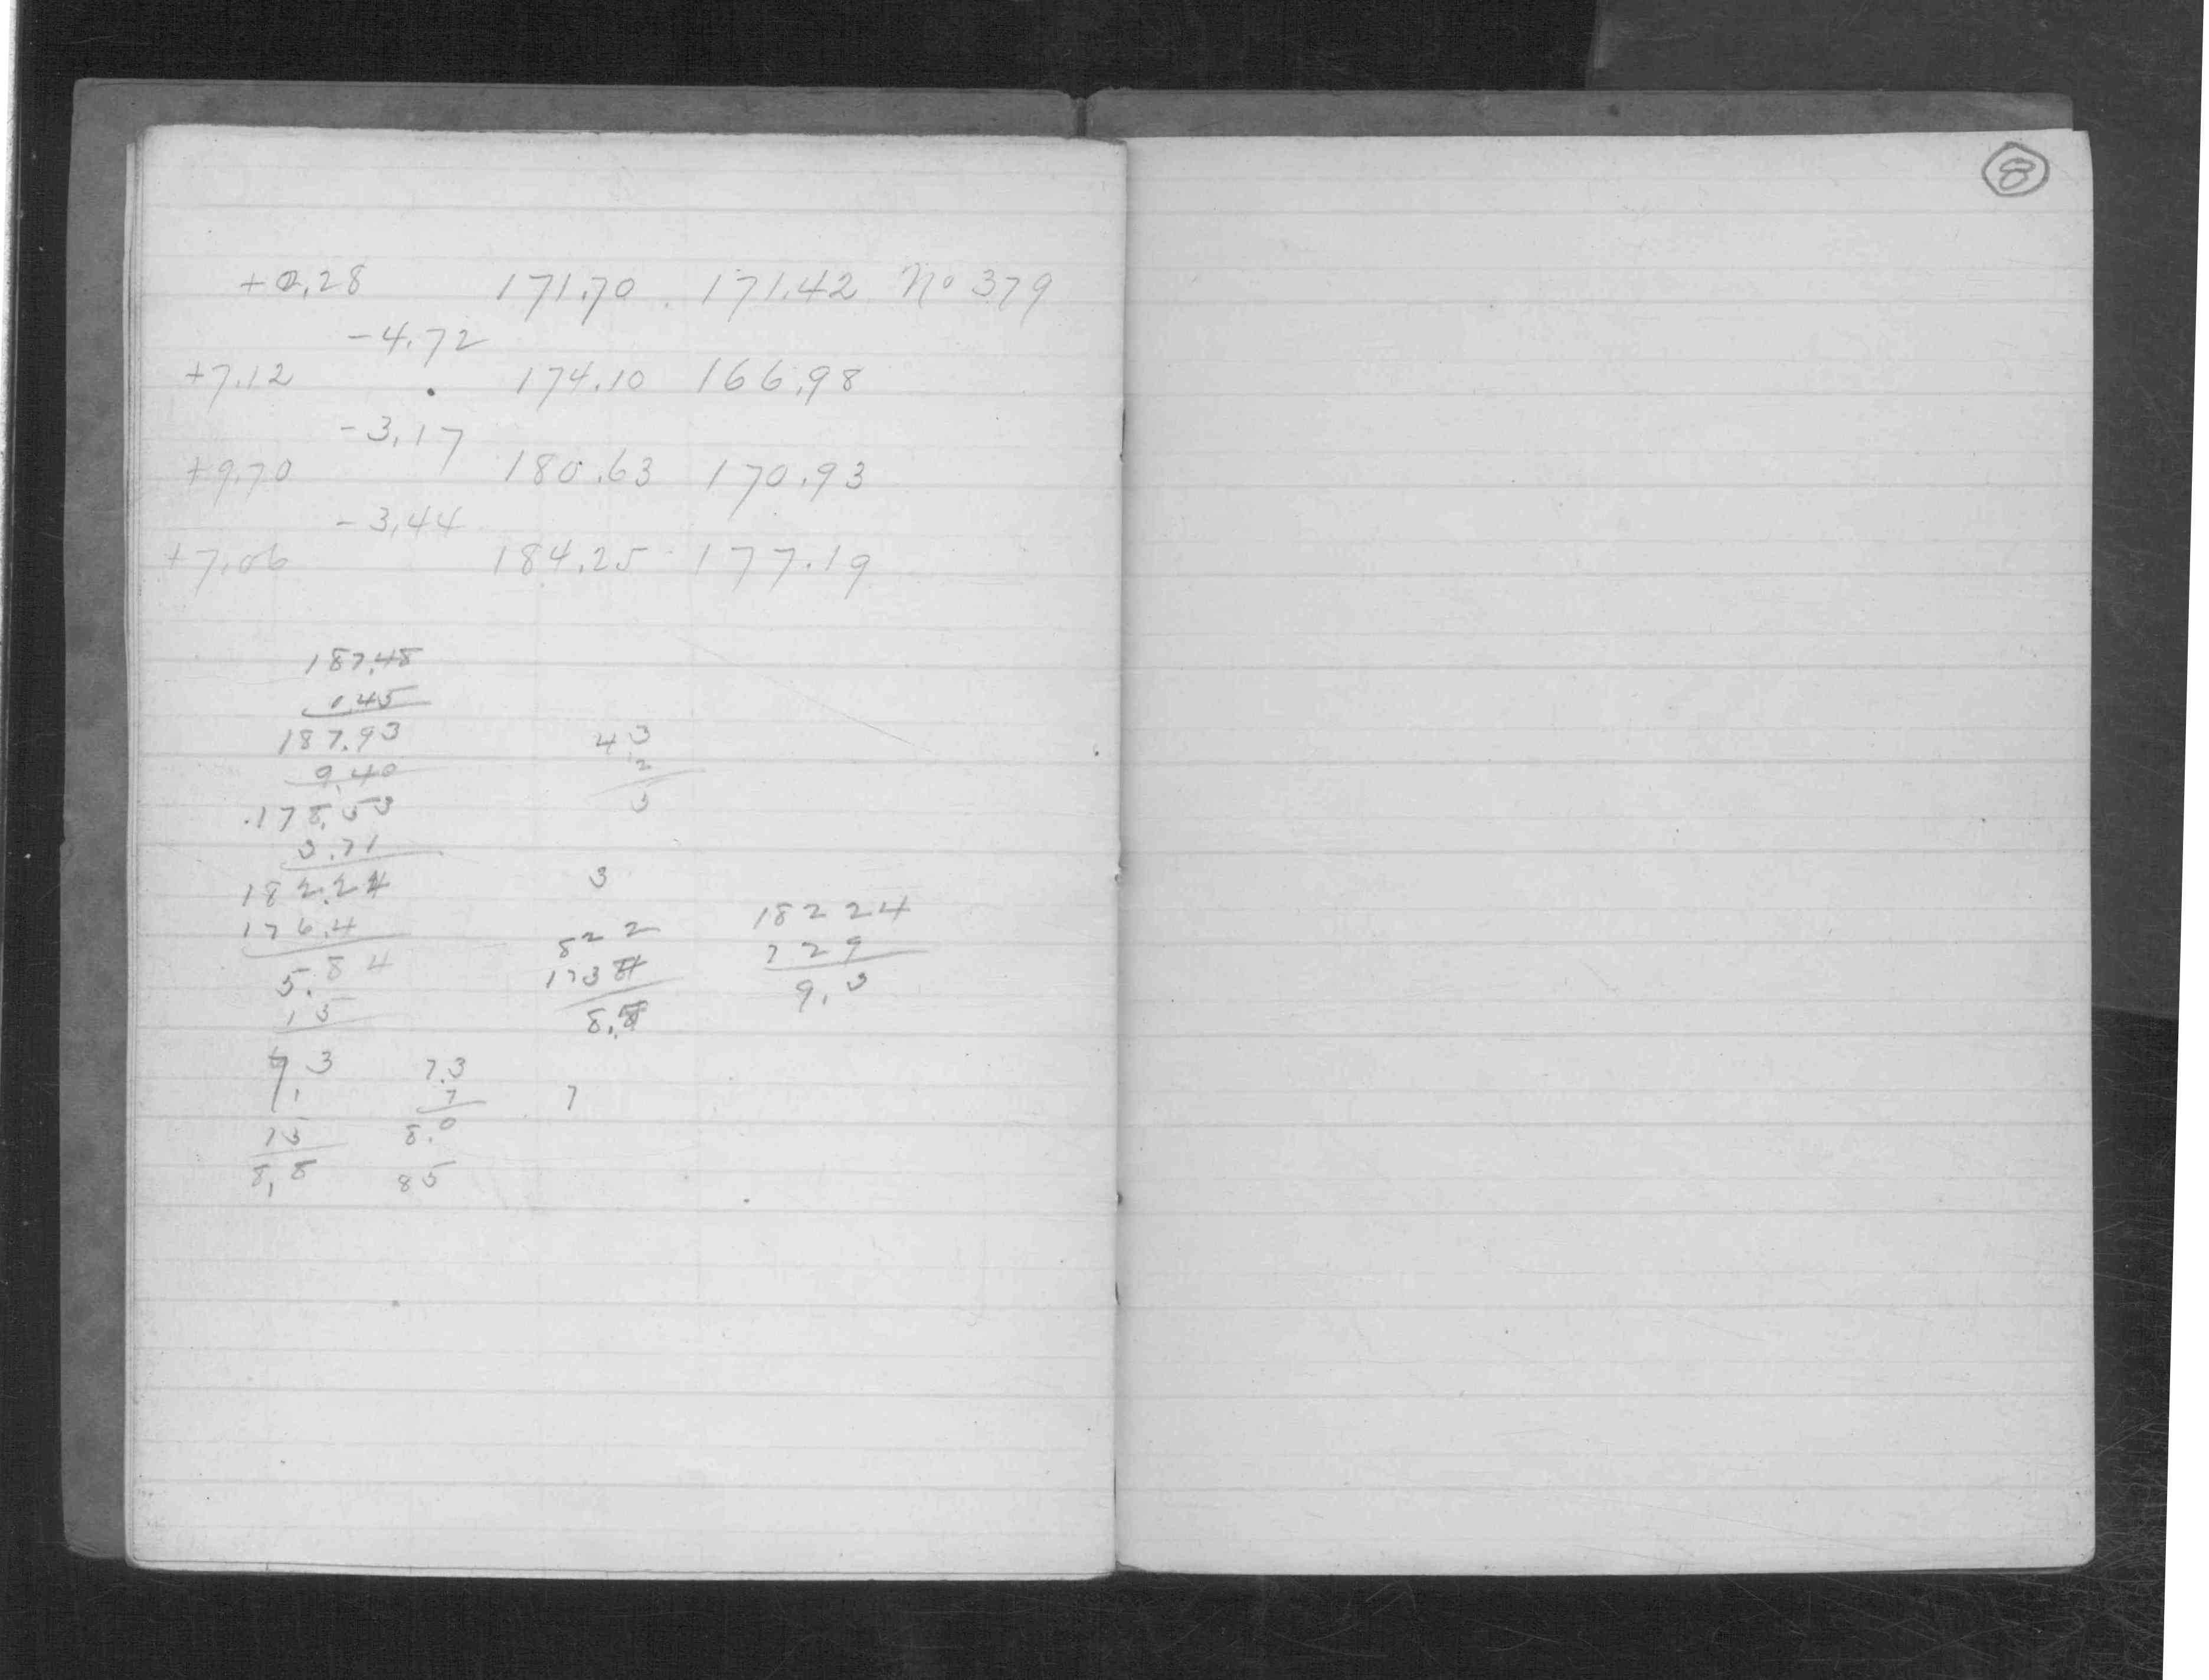 8
+0.28 171.70 171.42 No 379
-4.72
+7.12 174.10 166.98
-3.17
+9.70 180.63 170.93
-3.44
+7.06 184.25 177.19
187.48
0.45
187.93
9.40
178.53
3.71
182.24
176.4
5.84
15
43
2
3
3
822
8.8
18224
729
9.3
3
1
15
8.8
7.3
7
8.0
85
7